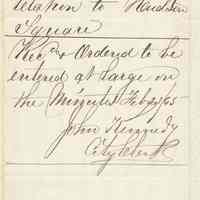 relation to Haudson
Square
Rec'd & Ordered to be
entered at large on
the Minutes Feby 5/65
John Kennedy
City Clerk